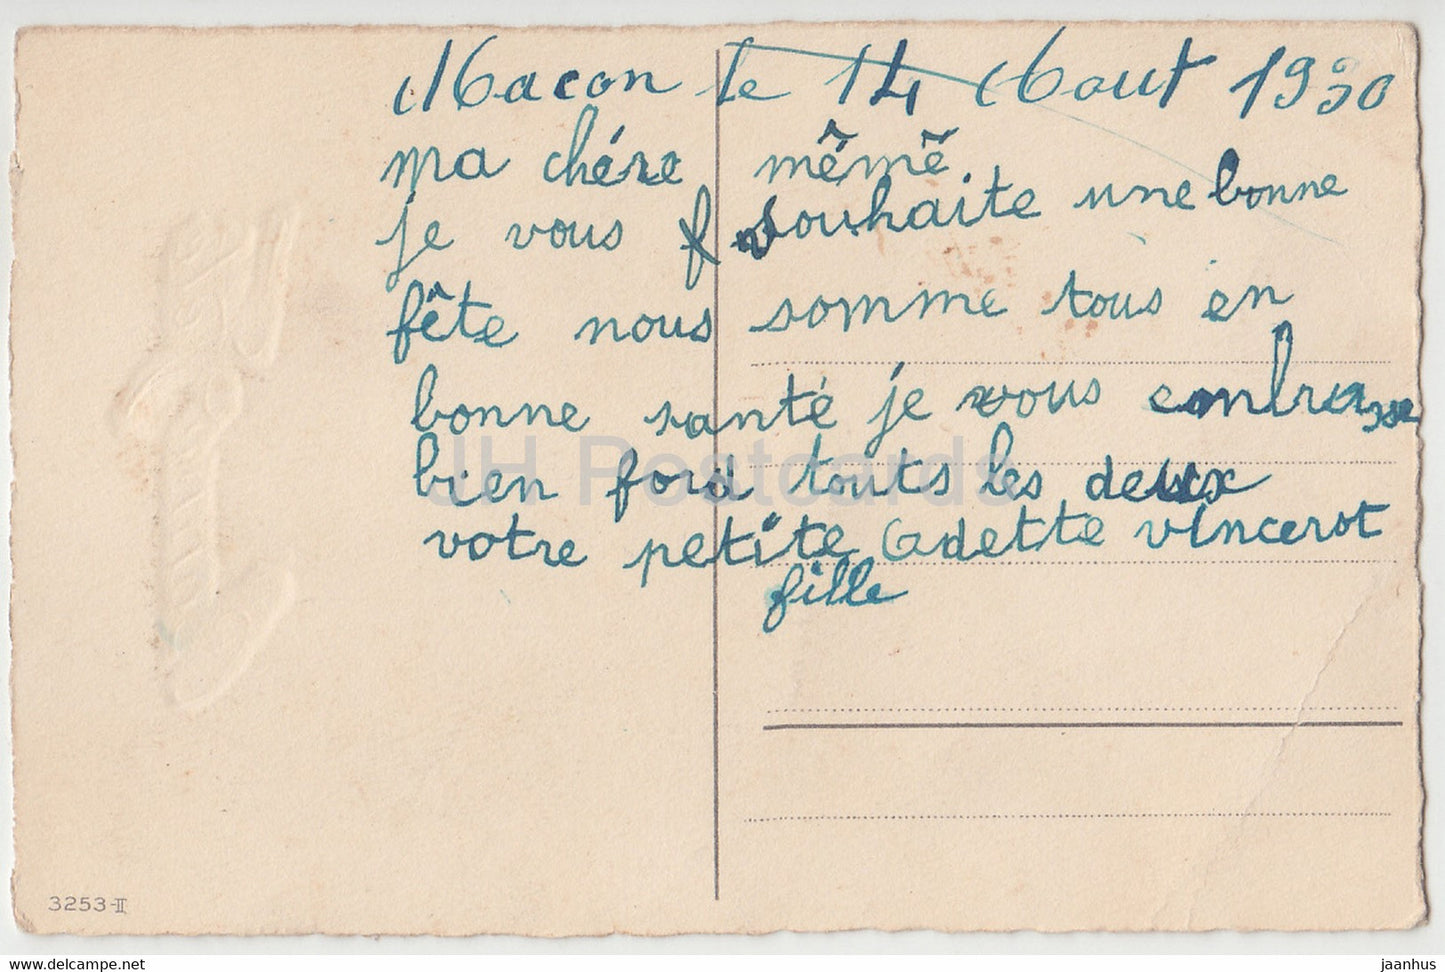 Macon le 14 Aout 1930
ma chére mémé
je vous souhaite une bonne
fête nous somme tous en
bonne santé je vous embrasse
bien ford touts les deux
votre petite Odette vincerot
fille
JH Postcards
3253-II
hippostcard.com
jaanhus